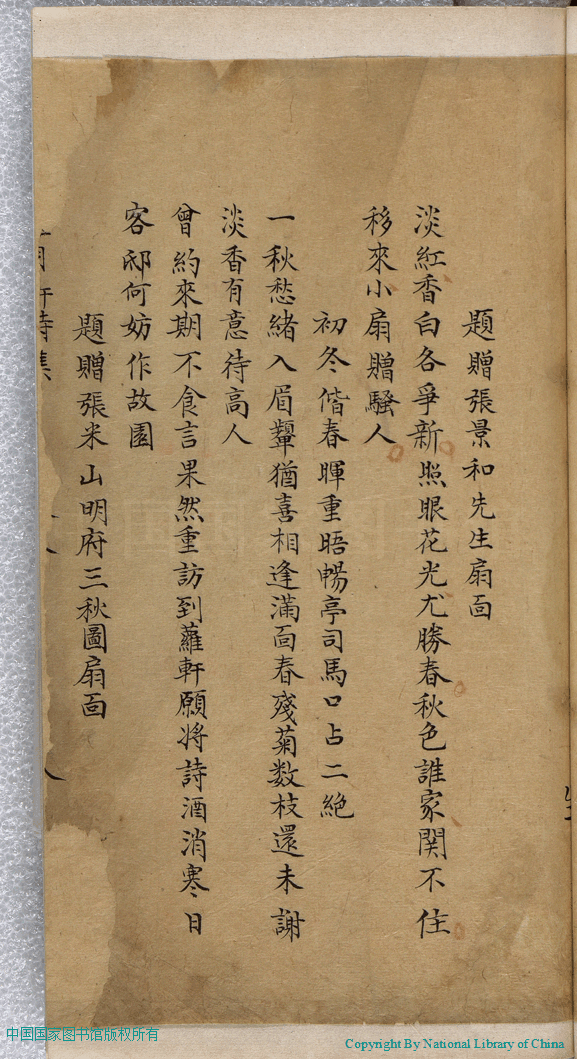 題贈張景和先生扇面
淡紅香白各爭新照眼花光尤勝春秋色誰家関不住
移來小扇贈騷人
初冬偕春暉重晤暢亭司馬口占二絶
一秋愁緒入眉顰猶喜相逢滿面春殘菊数枝還未謝
淡香有意待高人
曾約來期不食言果然重訪到蘿軒願將詩酒消寒日
客邸何妨作故園
題贈張米山明府三秋圖扇面
中国国家图书馆版权所有
Copyright By National Library of China